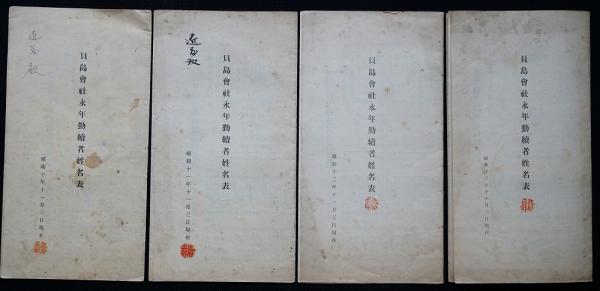 貝島會社永年勤續者姓名表
昭和十年十一月三日現在
貝島會社永年勤續者姓名表
昭和十一年十一月三日現在
貝島會社永年勤續者姓名表
昭和十二年十一月三日現在
貝島會社永年勤續者姓名表